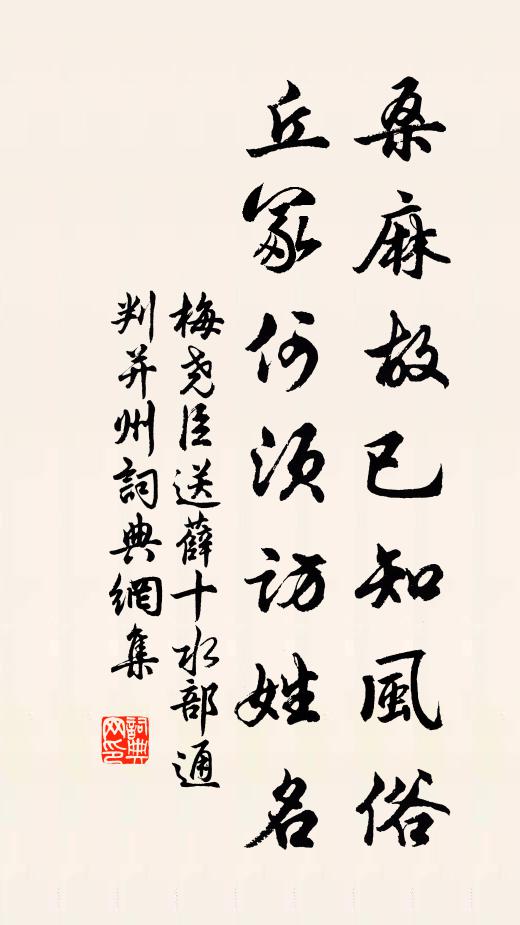 桑麻故已知風俗
丘冢何須訪姓名
梅堯臣送薛十水部通
判并州詞典網集
詞典
网印